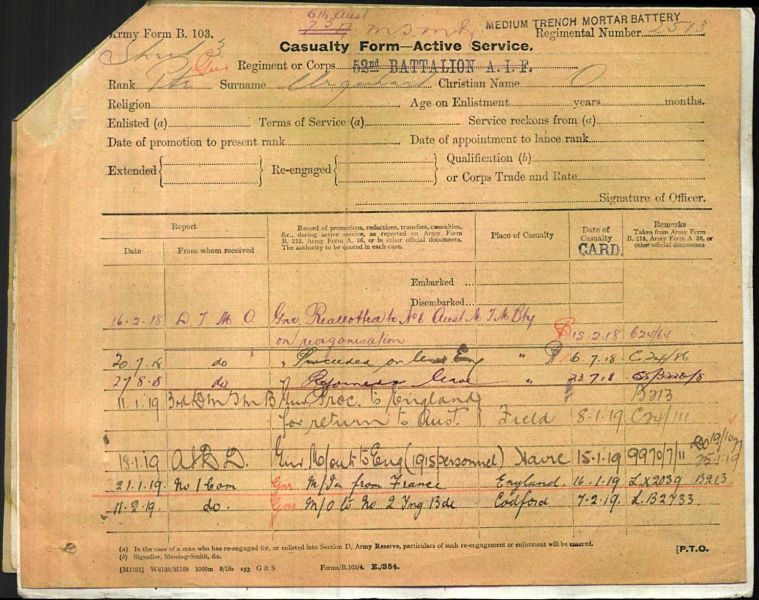 6th Aust
MEDIUM TRENCH MORTAR BATTERY
Army Form B. 103.
Regimental Number 2513
Casualty Form—Active Service.
Sheet 3
Gnr Regiment or Corps 52nd BATTALION A.I.F.
Rank Pte Surname Urquhart Christian Name O
Religion Age on Enlistment years months.
Enlisted (a) Terms of Service (a) Service reckons from (a)
Date of promotion to present rank Date of appointment to lance rank
Extended Re-engaged Qualification (b)
or Corps Trade and Rate
Signature of Officer.
Report
Record of promotions, reductions, transfers, casualties, &c., during active service, as reported on Army Form B. 213, Army Form A. 36, or in other official documents. The authority to be quoted in each case.
Place of Casualty
Date of Casualty
CARD.
Remarks
Taken from Army Form B. 213, Army Form A. 36, or other official documents
Date From whom received
Embarked
Disembarked
16.2.18 D T M O Gnr Reallotted to No 6 Aust M T M Bty
on reorganisation 15.2.18
20.7.18 do " Proceeded on Eng " 6.7.18 C.24/86
27.8.18 do " Rejoined Leave " 23.7.18
B213
11.1.19 Gnr Proc. to England
for return to Aust. Field 8.1.19 C24/111
18.1.19 Gnr M/out to Eng (1915 personnel) Havre 15.1.19 9970/7/11 25.1.19
21.1.19 No 1 Com Gnr M/In from France England. 16.1.19 LX2039 B213.
11.2.19. do. Gnr M/O to No 2 Tng Bde Codford 7.2.19 L.B2733
(a) In the case of a man who has re-engaged for, or enlisted into Section D, Army Reserve, particulars of such re-engagement or enlistment will be entered.
(b) Signaller, Shoeing-Smith, &c.
[P.T.O.
1000m 9/16s G & S Forms/B.103/4. E./354.